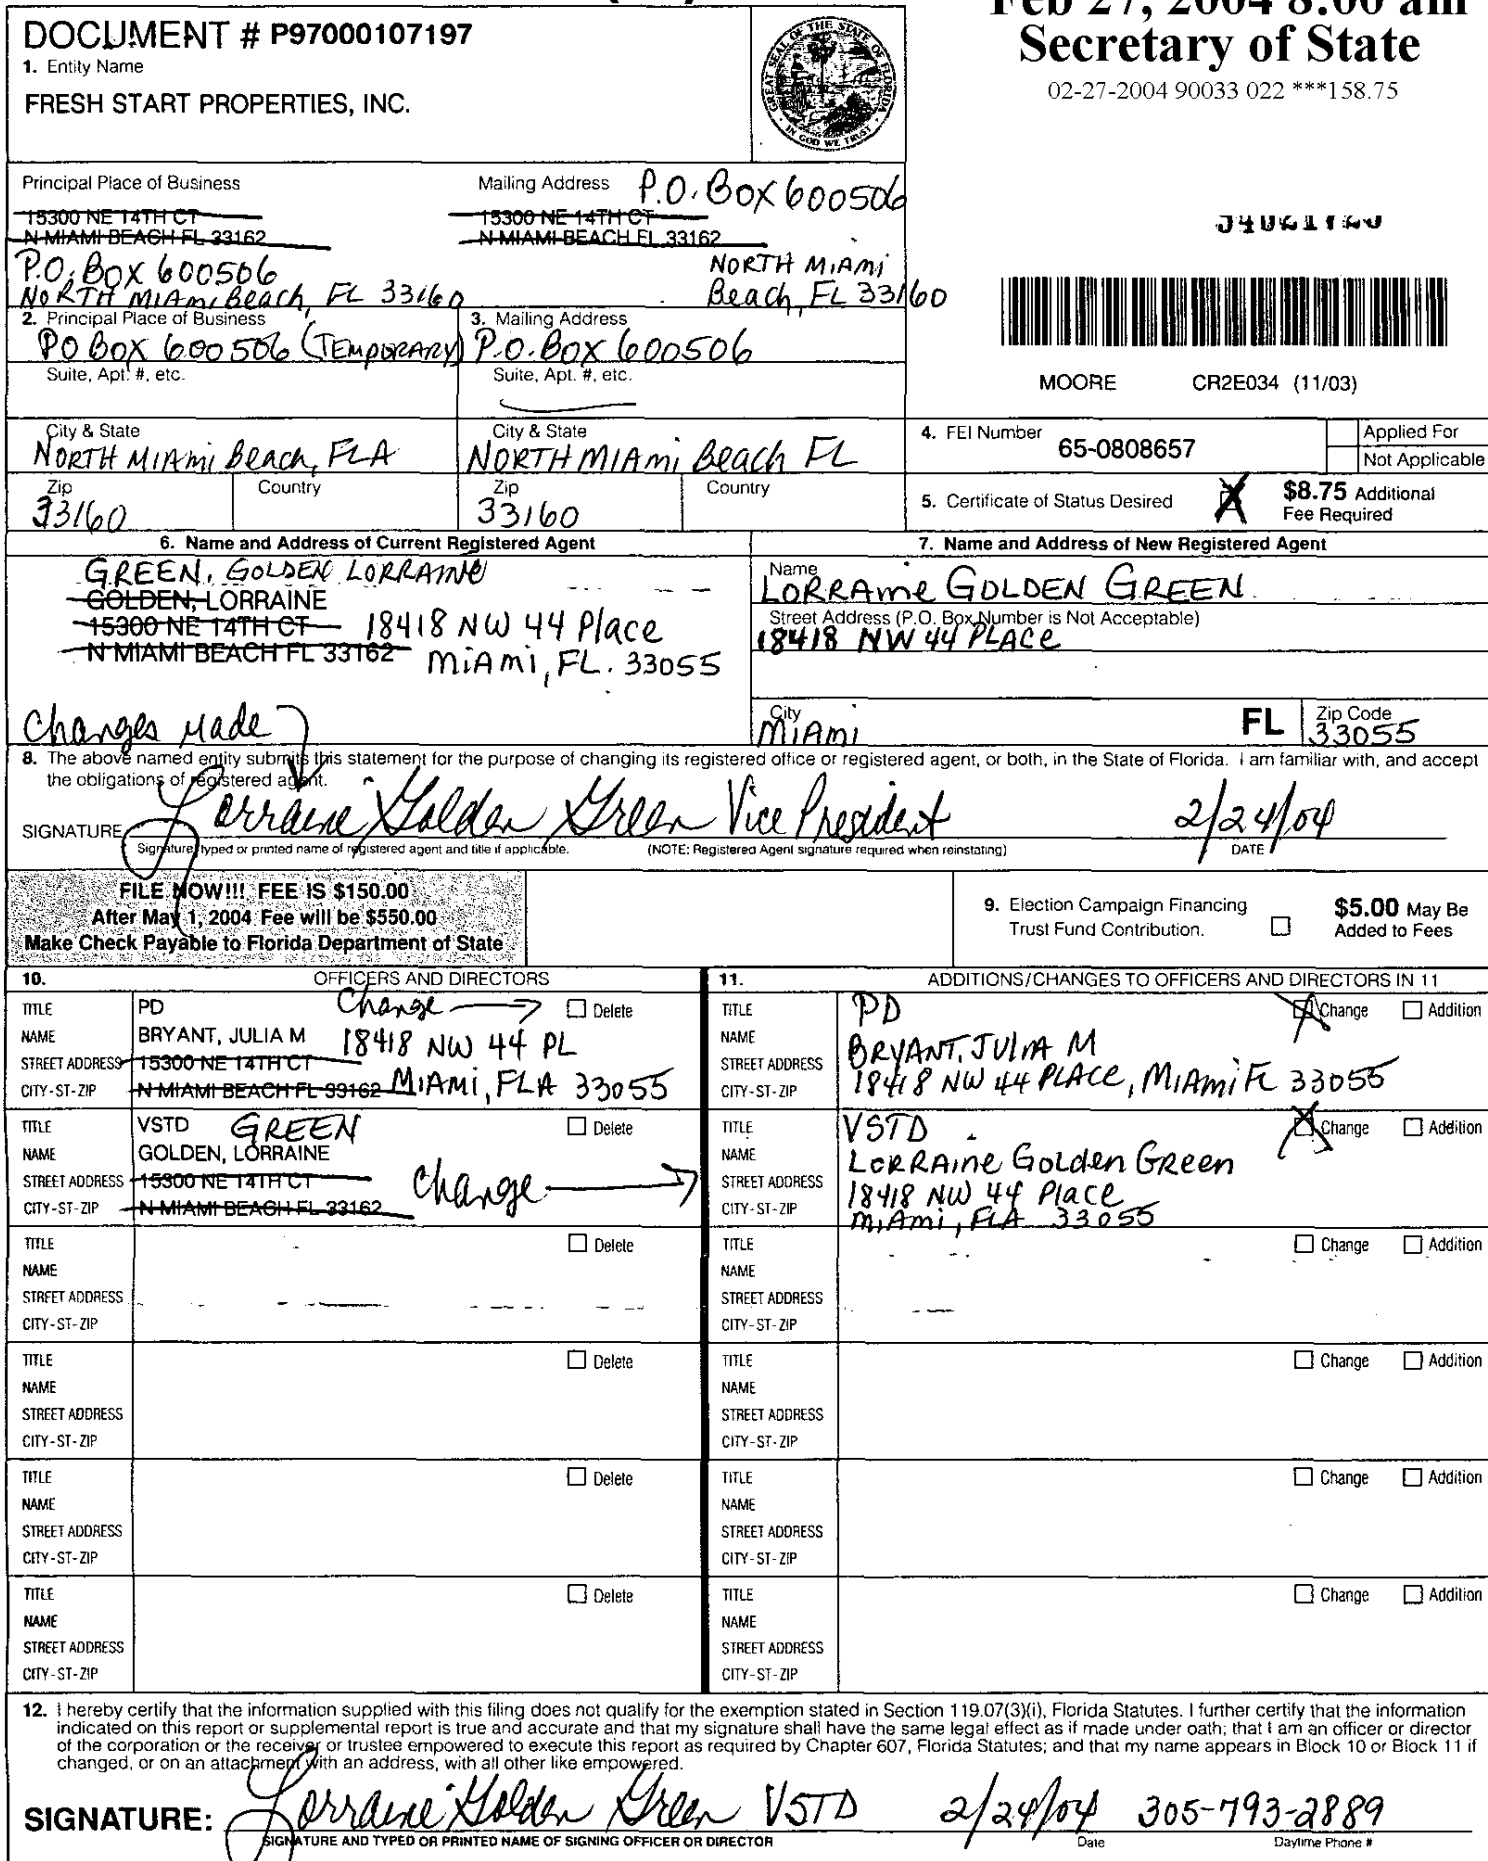 Feb 27, 2004 8:00 am
Secretary of State
02-27-2004 90033 022 ***158.75
DOCUMENT # P97000107197
1. Entity Name
FRESH START PROPERTIES, INC.
GREAT SEAL OF THE STATE OF FLORIDA
IN GOD WE TRUST
Principal Place of Business
15300 NE 14TH CT
N MIAMI BEACH FL 33162
P.O. BOX 600506
NORTH MIAMI Beach, FL 33160
Mailing Address P.O. BOX 600506
15300 NE 14TH CT
N MIAMI BEACH FL 33162
NORTH MIAMI
Beach, FL 33160
2. Principal Place of Business
PO BOX 600506 (TEMPORARY)
Suite, Apt. #, etc.
3. Mailing Address
P.O. BOX 600506
Suite, Apt. #, etc.
MOORE CR2E034 (11/03)
City & State
NORTH MIAMI Beach, FLA
City & State
NORTH MIAMI Beach FL
Zip
33160
Country
Zip
33160
Country
4. FEI Number
65-0808657
Applied For
Not Applicable
5. Certificate of Status Desired X $8.75 Additional
Fee Required
6. Name and Address of Current Registered Agent
GREEN, GOLDEN LORRAINE
GOLDEN, LORRAINE
15300 NE 14TH CT 18418 NW 44 Place
N MIAMI BEACH FL 33162 MIAMI, FL. 33055
Changes Made
7. Name and Address of New Registered Agent
Name
LORRAINE GOLDEN GREEN
Street Address (P.O. Box Number is Not Acceptable)
18418 NW 44 PLACE
City
MIAMI
FL
Zip Code
33055
8. The above named entity submits this statement for the purpose of changing its registered office or registered agent, or both, in the State of Florida. I am familiar with, and accept
the obligations of registered agent.
SIGNATURE Lorraine Golden Green Vice President 2/24/04
Signature, typed or printed name of registered agent and title if applicable. (NOTE: Registered Agent signature required when reinstating) DATE
FILE NOW!!! FEE IS $150.00
After May 1, 2004 Fee will be $550.00
Make Check Payable to Florida Department of State
9. Election Campaign Financing
Trust Fund Contribution.
$5.00 May Be
Added to Fees
10. OFFICERS AND DIRECTORS
TITLE PD Change Delete
NAME BRYANT, JULIA M 18418 NW 44 PL
STREET ADDRESS 15300 NE 14TH CT
CITY-ST-ZIP N MIAMI BEACH FL 33162 MIAMI, FLA 33055
TITLE VSTD GREEN Delete
NAME GOLDEN, LORRAINE
STREET ADDRESS 15300 NE 14TH CT Change
CITY-ST-ZIP N MIAMI BEACH FL 33162
TITLE Delete
NAME
STREET ADDRESS
CITY-ST-ZIP
TITLE Delete
NAME
STREET ADDRESS
CITY-ST-ZIP
TITLE Delete
NAME
STREET ADDRESS
CITY-ST-ZIP
TITLE Delete
NAME
STREET ADDRESS
CITY-ST-ZIP
11. ADDITIONS/CHANGES TO OFFICERS AND DIRECTORS IN 11
TITLE PD X Change Addition
NAME BRYANT, JULIA M
STREET ADDRESS 18418 NW 44 PLACE, MIAMI FL 33055
CITY-ST-ZIP
TITLE VSTD X Change Addition
NAME LORRAine Golden Green
STREET ADDRESS 18418 NW 44 Place
CITY-ST-ZIP MIAMI, FLA 33055
TITLE Change Addition
NAME
STREET ADDRESS
CITY-ST-ZIP
TITLE Change Addition
NAME
STREET ADDRESS
CITY-ST-ZIP
TITLE Change Addition
NAME
STREET ADDRESS
CITY-ST-ZIP
TITLE Change Addition
NAME
STREET ADDRESS
CITY-ST-ZIP
12. I hereby certify that the information supplied with this filing does not qualify for the exemption stated in Section 119.07(3)(i), Florida Statutes. I further certify that the information
indicated on this report or supplemental report is true and accurate and that my signature shall have the same legal effect as if made under oath; that I am an officer or director
of the corporation or the receiver or trustee empowered to execute this report as required by Chapter 607, Florida Statutes; and that my name appears in Block 10 or Block 11 if
changed, or on an attachment with an address, with all other like empowered.
SIGNATURE: Lorraine Golden Green VSTD 2/24/04 305-793-2889
SIGNATURE AND TYPED OR PRINTED NAME OF SIGNING OFFICER OR DIRECTOR Date Daytime Phone #